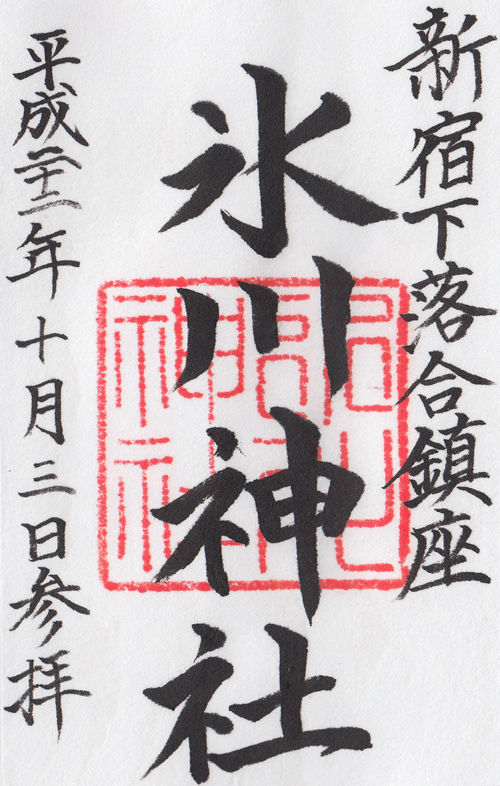 新宿下落合鎮座
氷川神社
平成二十二年十月三日参拝